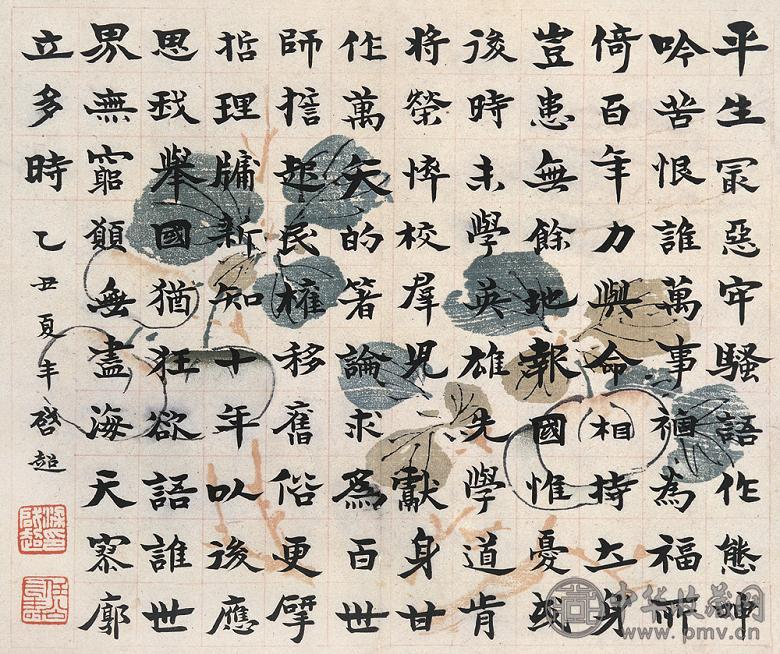 平生冣惡牢騷語作態呻
吟苦恨誰萬事禍為福所
倚百年力與命相持立身
豈患無餘地報國惟憂或
後時未學英雄先學道肯
將榮悴校羣兒獻身甘
作萬矢的著論求爲百世
師誓起民權移舊俗更揅
哲理牖新知十年以後應
思我舉國猶狂欲語誰世
界無窮願無盡海天寥廓
立多時 乙丑夏 啓超
中华收藏网
www.pmv.cn